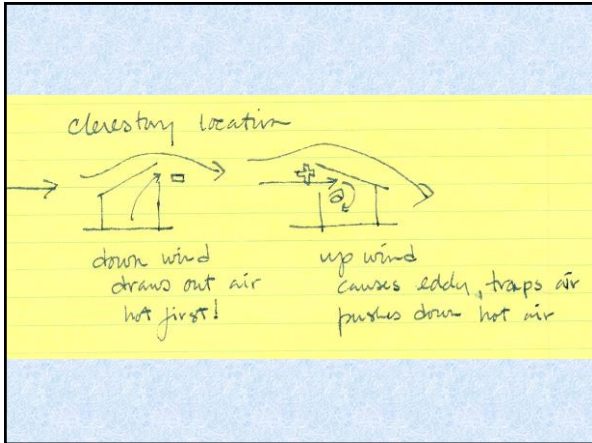 clerestory location
down wind
draws out air
hot first!
up wind
causes eddy, traps air
pushes down hot air